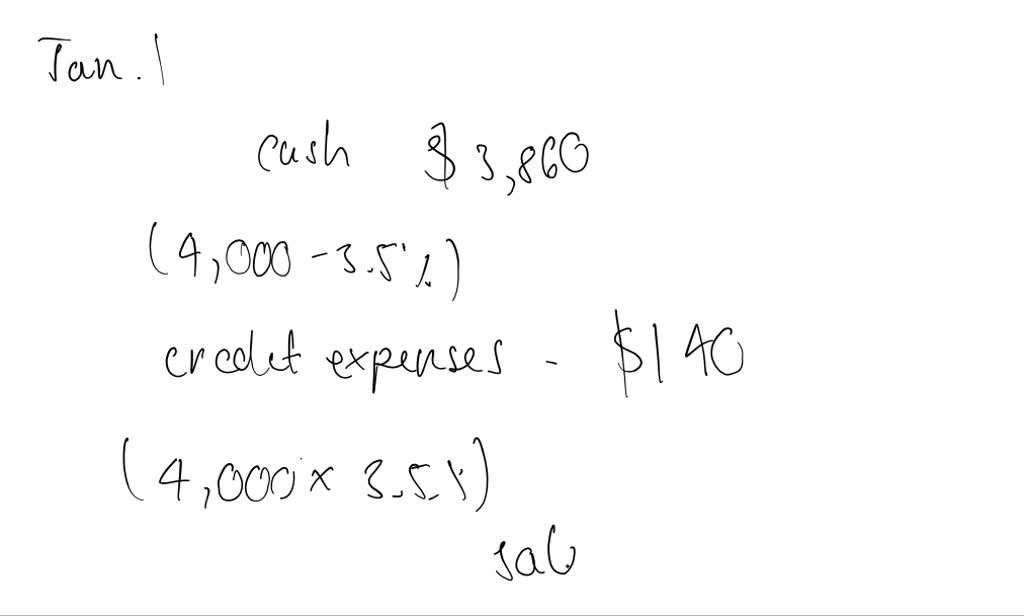 Jan. 1
cash $3,860
(4,000 - 3.5%)
credit expenses - $140
(4,000 x 3.5%)
sal